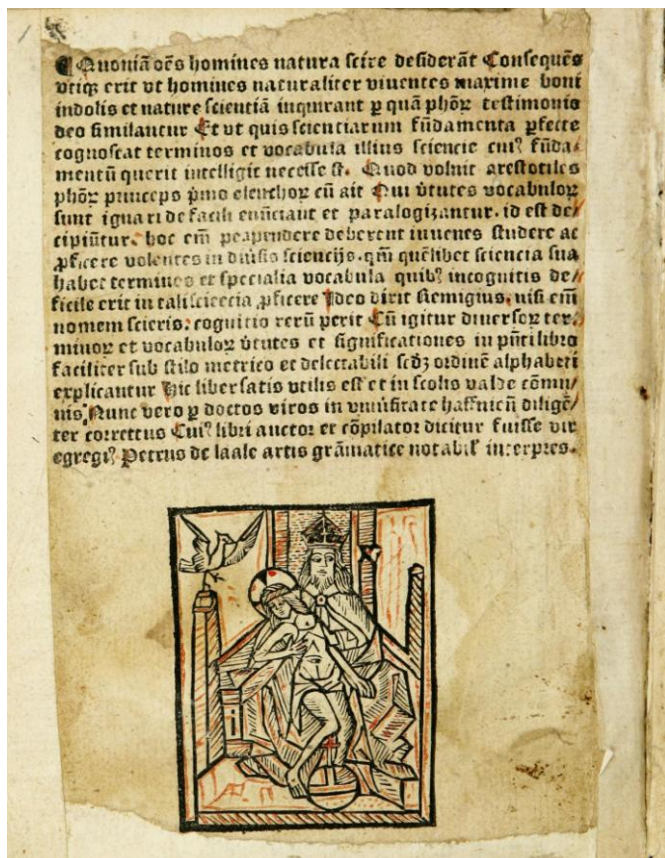 ¶ Quoniā oēs homines natura scire desiderāt Consequēs
vtiqȝ erit vt homines naturaliter viuentes maxime boni
indolis et nature scientiā inquirant ꝑ quā phōꝝ testimonio
deo similantur Et vt quis scientiarum fūdamenta ꝑfecte
cognoscat terminos et vocabula illius sciencie cuiꝰ fūda⸗
mentū querit intelligit necesse ē. Quod voluit arestotiles
phōꝝ princeps pͥmo elenchoꝝ cū ait Qui v̄tutes vocabuloꝝ
sunt ignari de facili enūciant et paralogizantur. id est de⸗
cipiūtur. hoc em̄ peapendere deberent iuuenes studere ac
ꝓficere volentes in diūsis sciencijs. qm̄ quēlibet sciencia sua
habet terminos et specialia vocabula quibꝰ incognitis de⸗
ficile erit in tali sciēcia ꝓficere Ideo dixit Remigius. nisi em̄
nomem scieris. cognitio rerū perit Cū igitur diuersoꝝ ter⸗
minoꝝ et vocabuloꝝ v̄tutes et significationes in pn̄ti libro
faciliter sub stilo metrico et delectabili scd̄ȝ ordinē alphabeti
explicantur Hic liber satis vtilis est et in scolis valde cōmu
nis. Nunc vero ꝑ doctos viros in vniūsitate haffnieñ diligē⸗
ter correctus Cuiꝰ libri auctor et cōpilator dicitur fuisse vir
egregiꝰ Petrus de laale artis grāmatice notabil̓ interpres.